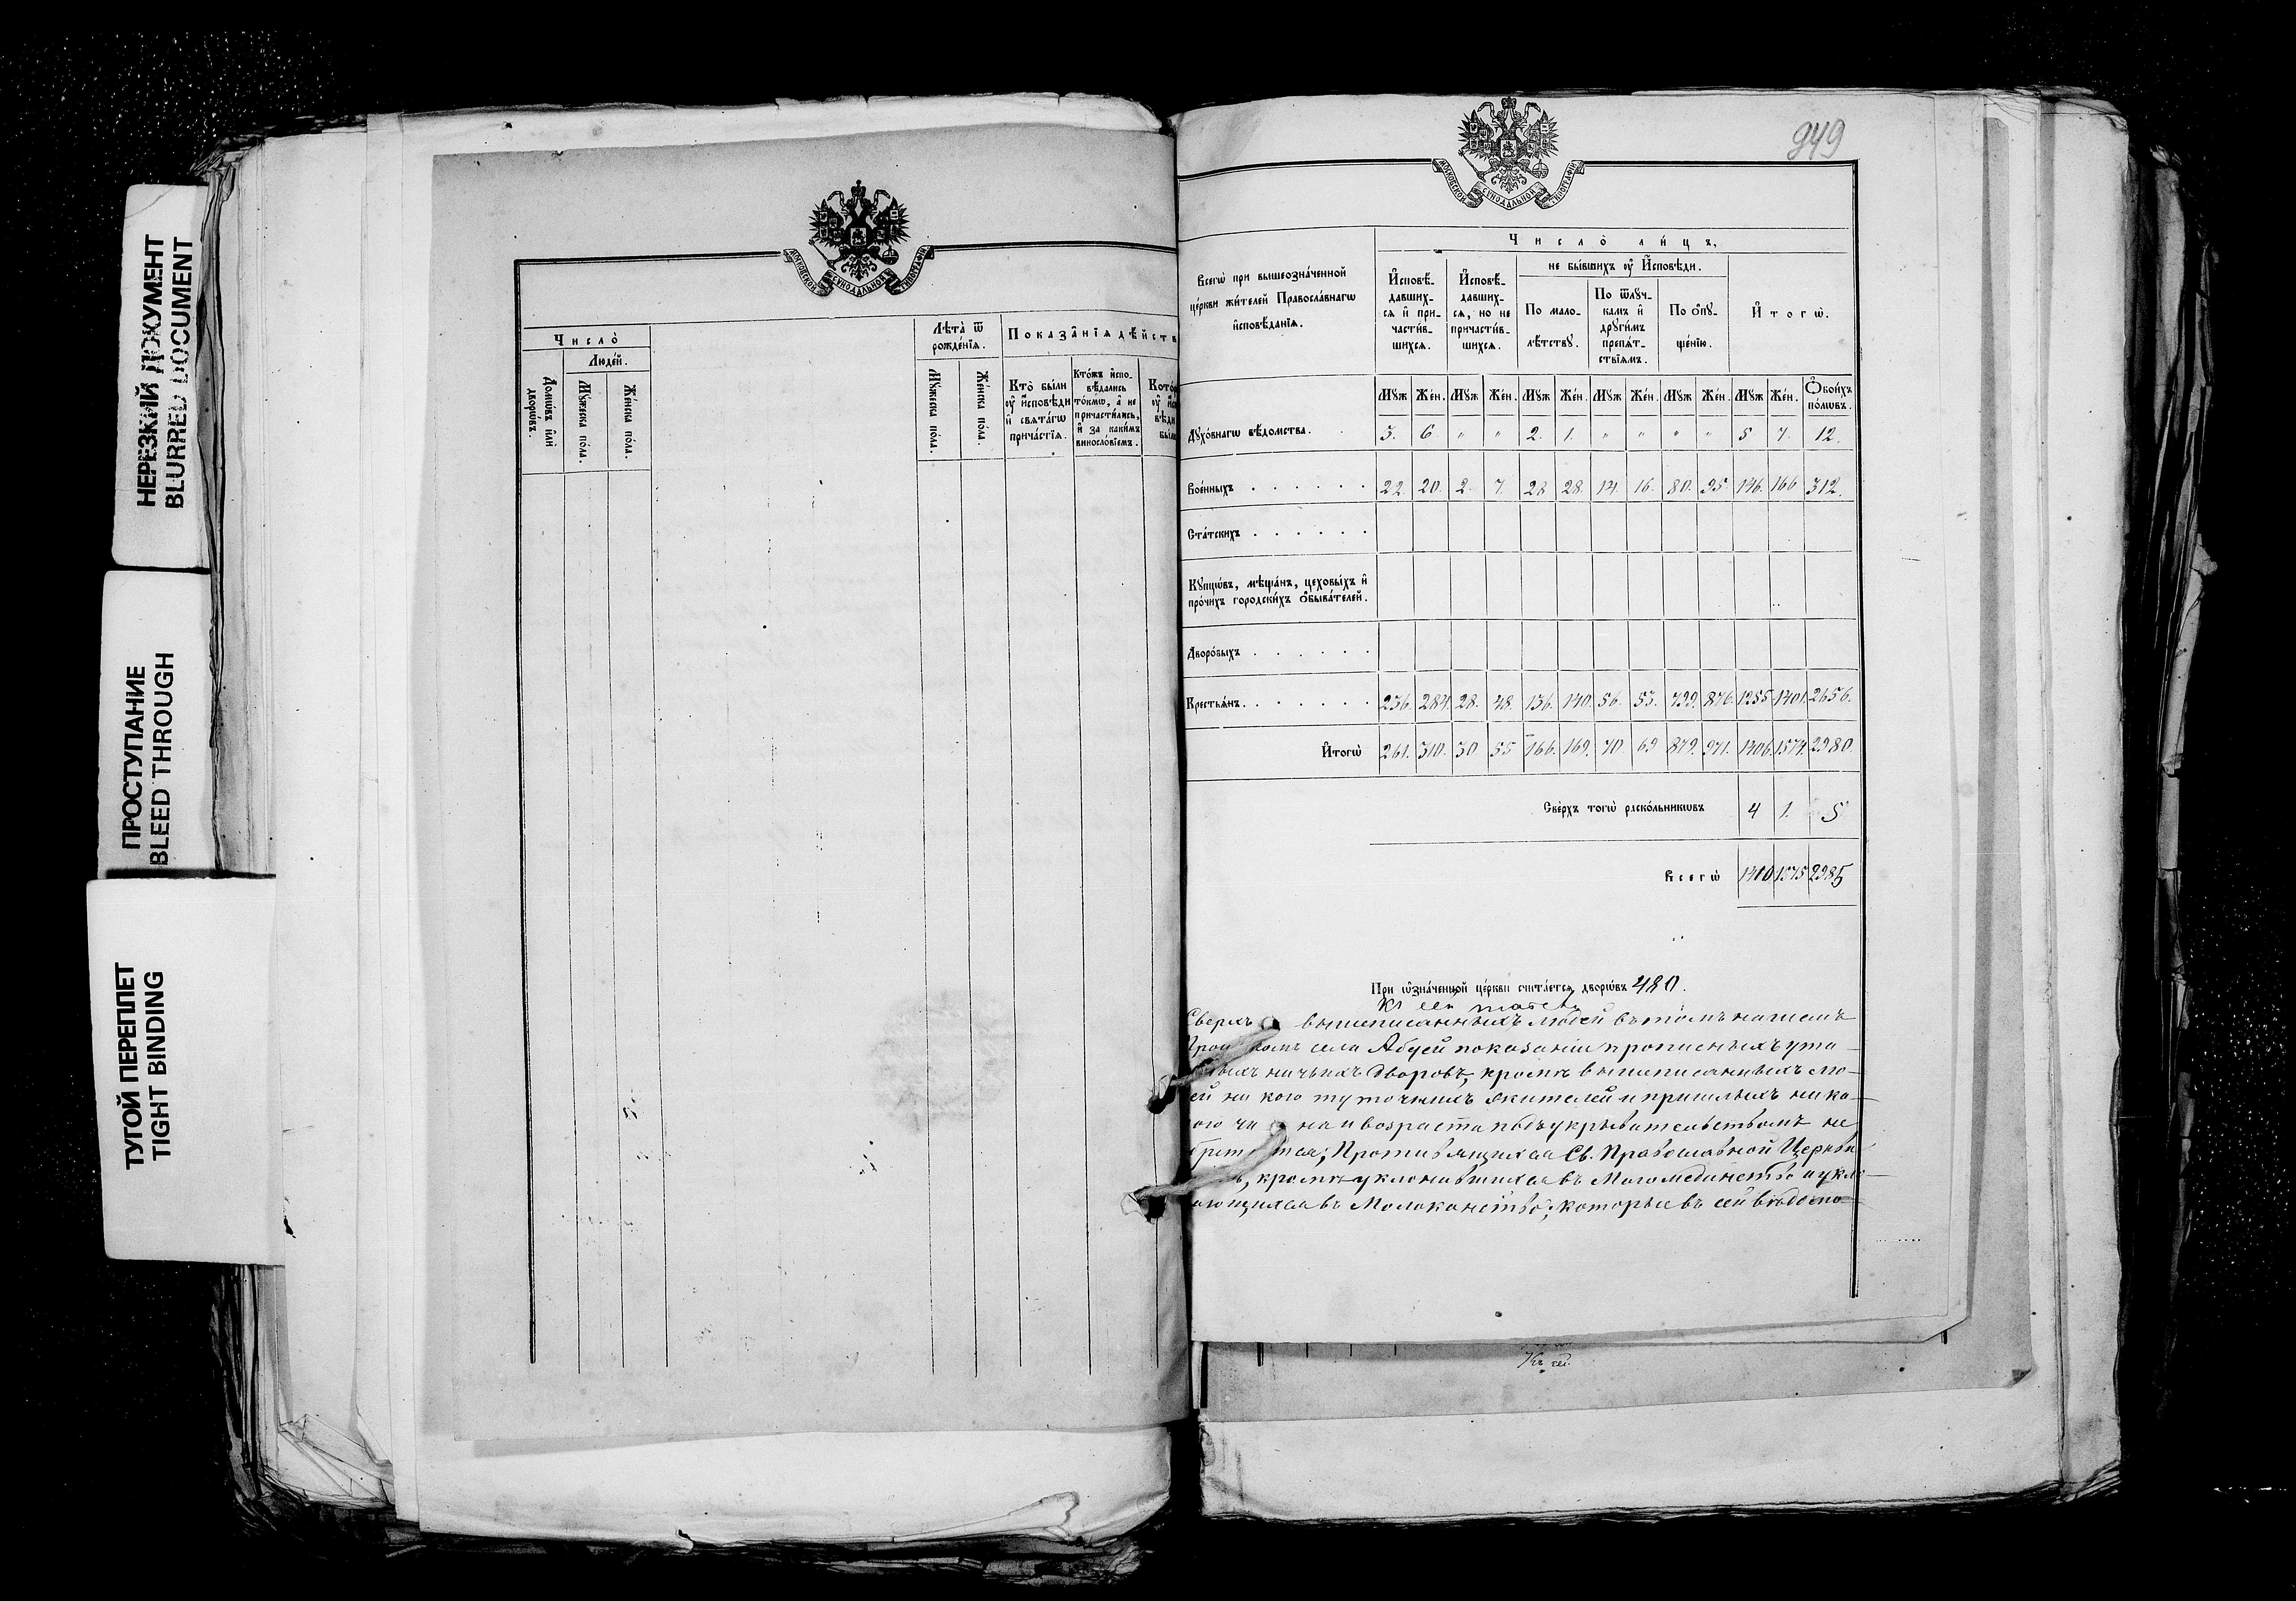 НЕРЕЗКИЙ ДОКУМЕНТ
BLURRED DOCUMENT
ПРОСТУПАНИЕ
BLEED THROUGH
ТУГОЙ ПЕРЕПЛЕТ
TIGHT BINDING
МОСКОВСКОЙ СѴНОДАЛЬНОЙ ТИПОГРАФІИ
Число̀
Люде́й.
Домѡ́въ и҆лѝ дворѡ́въ.
Мꙋ́жеска по́ла.
Же́нска по́ла.
Лѣта̀ ѿ рожде́нїѧ.
Мꙋ́жеска по́ла.
Же́нска по́ла.
Показа̑нїѧ дѣ́йств
Кто̀ бы́ли
оу҆ и҆́сповѣди
и҆ свѧта́гѡ
прича́стїѧ.
Кто́жъ и҆спо-
вѣ́дались
то́кмѡ, а҆ не
причасти́лись,
и҆ за каки́мъ
винослѡ́вїемъ.
949
МОСКОВСКОЙ СѴНОДАЛЬНОЙ ТИПОГРАФІИ
Всегѡ̀ при вышеозна́ченной
це́ркви жи́телей Правосла́внагѡ
и҆сповѣ́данїѧ.
Число̀ ли́цъ,
И҆сповѣ́-
давших-
сѧ и҆ при-
части́в-
шихсѧ.
И҆сповѣ́-
давших-
сѧ, но не
причасти́в-
шихсѧ.
не бы́вшихъ оу҆ И҆́сповѣди.
По мало-
лѣ́тствꙋ.
По ѿлꙋч-
камъ и҆
дрꙋги́мъ
препѧ́т-
ствїѧмъ.
По ѻ҆пꙋ-
ще́нїю.
И҆тогѡ̀.
Мꙋж Же́н. Мꙋж Же́н. Мꙋж Же́н. Мꙋж Же́н. Мꙋж Же́н. Мꙋж Же́н. Ѻ҆бои́хъ по́лѡвъ.
Дꙋхо́внагѡ вѣ́домства. 3. 6 " " 2. 1. " " " " 5 7. 12.
Вое́нныхъ 22. 20. 2. 7. 28 28. 14. 16. 80. 95. 146. 166 312.
Ста́тскихъ
Кꙋпцѡ́въ, мѣща́нъ, цеховы́хъ и҆
про́чихъ городски́хъ ѻ҆быва́телей.
Дворо́выхъ
Крестьѧ́нъ. 236. 284. 28. 48. 136. 140. 56. 53. 799. 876. 1255. 1401. 2656.
И҆тогѡ̀ 261. 310. 30 55 166. 169. 70. 69 879. 971. 1406. 1574. 2980.
Све́рхъ тогѡ̀ раско́льникѡвъ 4 1. 5
Всегѡ̀ 1410 1575 2985
При ѡ҆зна́ченной це́ркви счита́етсѧ дворѡ́въ 480.
Къ сей
Сверхъ вышеписанныхъ людей въ томъ нашемъ
села показаніи прописныхъ ута-
ничьихъ дворовъ, кромѣ вышеписанныхъ лю-
ей ни кого туточныхъ жителей и пришлыхъ ника-
ого чи на и возраста подъ укрывательствомъ не
; Противящихся Св. Православной Церкви
, кромѣ уклонившихся въ Магомеданство и укло-
ющихся въ Молоканство; которые въ сей вѣдомо-
Къ сей